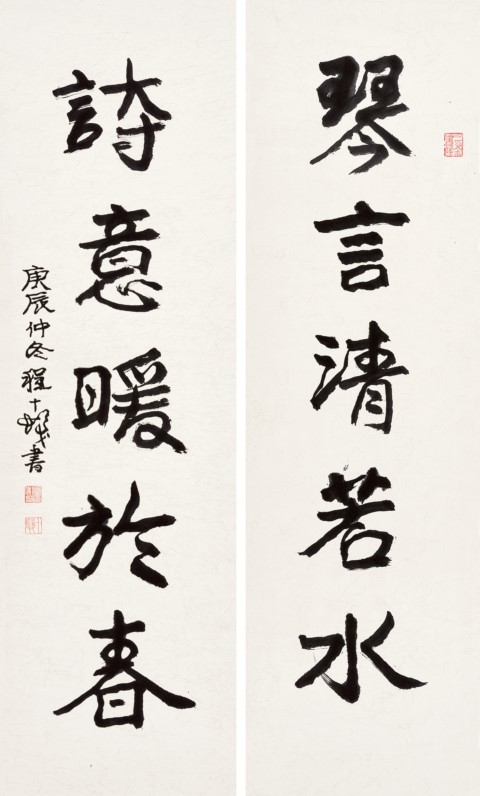 琴言清若水
詩意暖於春
庚辰仲冬程十髮書